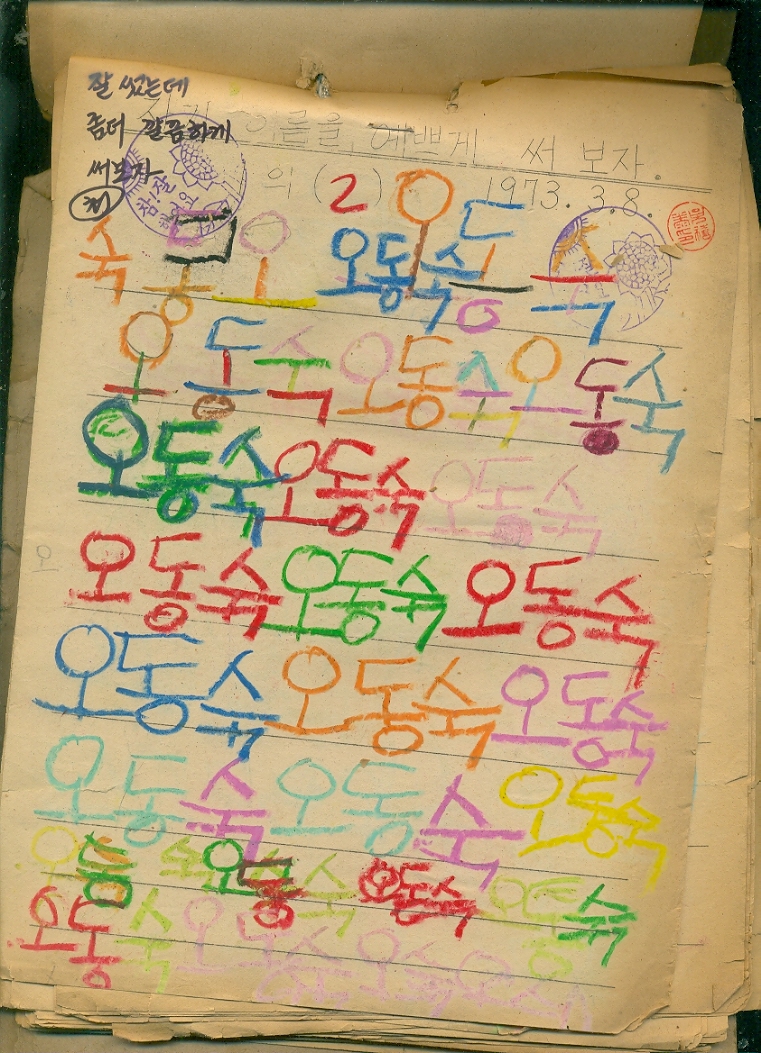 잘 썼는데
좀더 깔끔하게
써보자.
이름을, 예쁘게 써 보자.
의 (2) 1973. 3. 8.
숙 동 오 오동숙 오동숙
오동숙 오동숙 오동숙
오동숙 오동숙 오동숙
오
오동숙 오동숙 오동숙
오동숙 오동숙 오동숙
오동숙 오동숙 오동숙
오동숙 오동숙 오동숙 오동숙
오동숙 오동숙